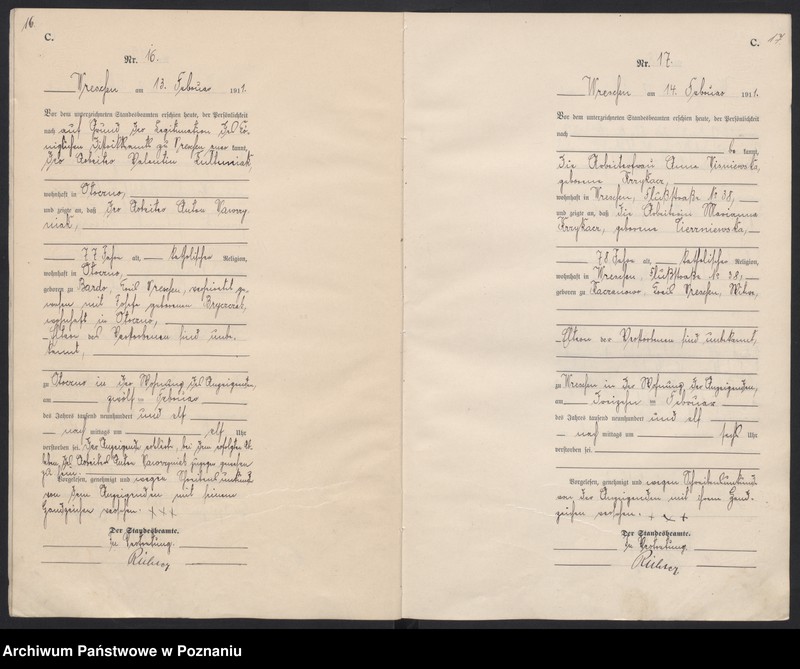 16
C.
Nr. 16.
Wreschen am 13. Februar 1911.
Vor dem unterzeichneten Standesbeamten erschien heute, der Persönlichkeit
nach auf Grund der Legitimation des Kö-
niglichen Distriktsamts zu Wreschen aner kannt,
der Arbeiter Valentin
wohnhaft in Otoczno,
und zeigte an, daß der Arbeiter Anton Kawczy-
niak,
77 Jahre alt, katholischer Religion,
wohnhaft in Otoczno,
geboren zu Bardo, Kreis Wreschen, verheiratet ge-
wesen mit geborenen
wohnhaft in Otoczno,
Eltern des Verstorbenen sind unbe-
kannt,
zu Otoczno in der Wohnung des Anzeigenden,
am zwölf ten Februar
des Jahres tausend neunhundert und elf
nach mittags um elf Uhr
verstorben sei. Der Anzeigende erklärte, bei dem erfolgten Ab-
leben des Arbeiters Anton zugegen gewesen
zu sein.
Vorgelesen, genehmigt und wegen Schreibensunkunde
von dem Anzeigenden mit seinem
Handzeichen versehen. + + +
Der Standesbeamte.
In Vertretung.
C.
17
Nr. 17.
Wreschen am 14. Februar 1911.
Vor dem unterzeichneten Standesbeamten erschien heute, der Persönlichkeit
nach
be kannt,
die Arbeiterfrau Anna Wisniewska,
geborene
wohnhaft in Wreschen, Flußstraße No 38,
und zeigte an, daß die Arbeiterin Marianna
geborene
78 Jahre alt, katholischer Religion,
wohnhaft in Wreschen, Flußstraße No 38,
geboren zu Kaczanowo, Kreis Wreschen, Witwe,
Eltern der Verstorbenen sind unbekannt,
zu Wreschen in der Wohnung der Anzeigenden,
am dreizehn ten Februar
des Jahres tausend neunhundert und elf
nach mittags um sechs Uhr
verstorben sei.
Vorgelesen, genehmigt und wegen Schreibensunkunde
von der Anzeigenden mit ihrem Hand-
zeichen versehen. + + +
Der Standesbeamte.
In Vertretung.
Archiwum Państwowe w Poznaniu